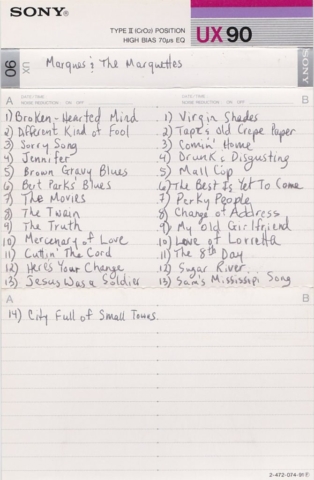 SONY
TYPE II (CrO2) POSITION
HIGH BIAS 70μs EQ
UX 90
90
UX
Marques & The Marquettes
SONY
A DATE/TIME
NOISE REDUCTION ON OFF
DATE/TIME B
NOISE REDUCTION ON OFF
1) Broken-Hearted Mind
2) Different Kind of Fool
3) Sorry Song
4) Jennifer
5) Brown Gravy Blues
6) Bert Parks' Blues
7) The Movies
8) The Twain
9) The Truth
10) Mercenary of Love
11) Cuttin' The Cord
12) Here's Your Change
13) Jesus Was a Soldier
1) Virgin Shades
2) Tape & Old Crepe Paper
3) Comin' Home
4) Drunk & Disgusting
5) Mall Cop
6) The Best Is Yet To Come
7) Perky People
8) Change of Address
9) My Old Girlfriend
10) Love of Lorretta
11) The 8th Day
12) Sugar River
13) Sam's Mississippi Song
A
B
14) City Full of Small Towns.
2-472-074-91